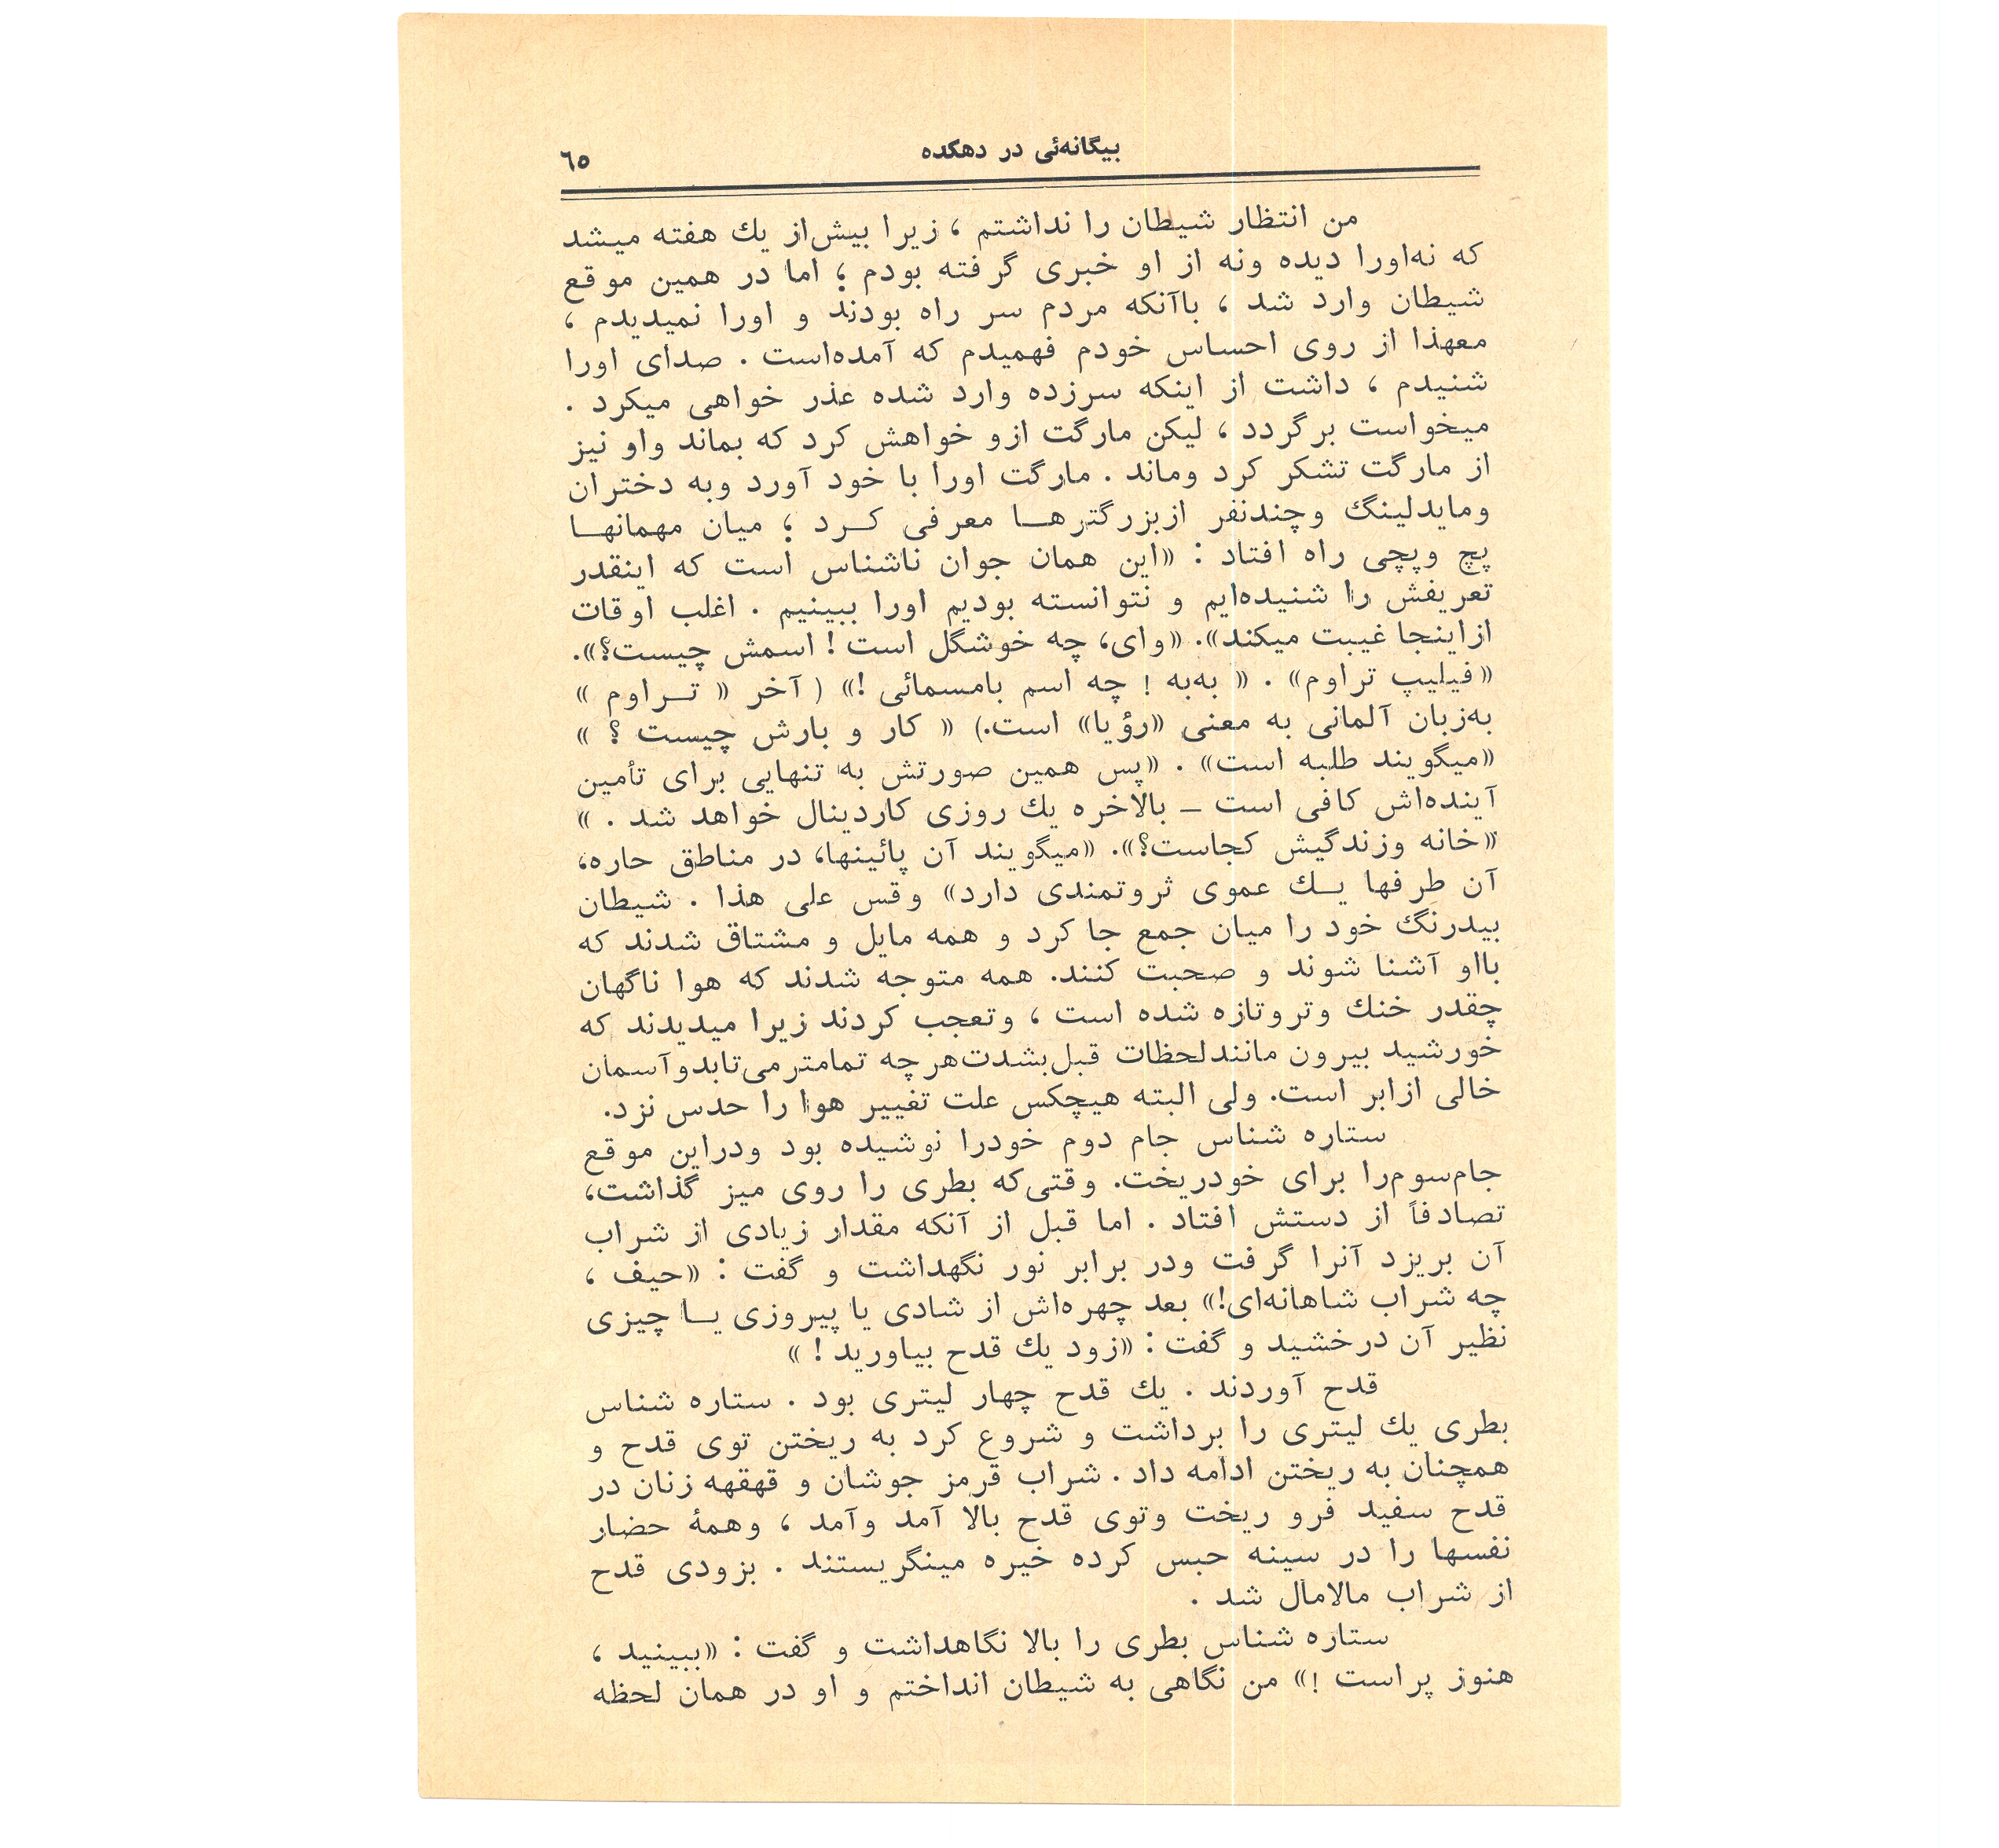 بیگانه‌ئی در دهکده
٦٥
من انتظار شیطان را نداشتم ، زیرا بیش‌از یك هفته میشد
که نه‌اورا دیده ونه از او خبری گرفته بودم ؛ اما در همین موقع
شیطان وارد شد ، باآنکه مردم سر راه بودند و اورا نمیدیدم ،
معهذا از روی احساس خودم فهمیدم که آمده‌است . صدای اورا
شنیدم ، داشت از اینکه سرزده وارد شده عذر خواهی میکرد .
میخواست برگردد ، لیکن مارگت ازو خواهش کرد که بماند واو نیز
از مارگت تشکر کرد وماند . مارگت اورا با خود آورد وبه دختران
ومایدلینگ وچندنفر ازبزرگترهـا معرفی کـرد ؛ میان مهمانهـا
پچ وپچی راه افتاد : «این همان جوان ناشناس است که اینقدر
تعریفش را شنیده‌ایم و نتوانسته بودیم اورا ببینیم . اغلب اوقات
ازاینجا غیبت میکند». «وای، چه خوشگل است ! اسمش چیست؟».
«فیلیپ تراوم» . « به‌به ! چه اسم بامسمائی !» ( آخر « تـراوم »
به‌زبان آلمانی به معنی «رؤیا» است.) « کار و بارش چیست ؟ »
«میگویند طلبه است» . «پس همین صورتش به تنهایی برای تأمین
آینده‌اش کافی است ـ بالاخره یك روزی کاردینال خواهد شد . »
«خانه وزندگیش کجاست؟». «میگویند آن پائینها، در مناطق حاره،
آن طرفها یـك عموی ثروتمندی دارد» وقس علی هذا . شیطان
بیدرنگ خود را میان جمع جا کرد و همه مایل و مشتاق شدند که
بااو آشنا شوند و صحبت کنند. همه متوجه شدند که هوا ناگهان
چقدر خنك وتروتازه شده است ، وتعجب کردند زیرا میدیدند که
خورشید بیرون مانندلحظات قبل‌بشدت‌هرچه تمامترمی‌تابدوآسمان
خالی ازابر است. ولی البته هیچکس علت تغییر هوا را حدس نزد.
ستاره شناس جام دوم خودرا نوشیده بود ودراین موقع
جام‌سوم‌را برای خودریخت. وقتی‌که بطری را روی میز گذاشت،
تصادفاً از دستش افتاد . اما قبل از آنکه مقدار زیادی از شراب
آن بریزد آنرا گرفت ودر برابر نور نگهداشت و گفت : «حیف ،
چه شراب شاهانه‌ای!» بعد چهره‌اش از شادی یا پیروزی یـا چیزی
نظیر آن درخشید و گفت : «زود یك قدح بیاورید ! »
قدح آوردند . یك قدح چهار لیتری بود . ستاره شناس
بطری یك لیتری را برداشت و شروع کرد به ریختن توی قدح و
همچنان به ریختن ادامه داد . شراب قرمز جوشان و قهقهه زنان در
قدح سفید فرو ریخت وتوی قدح بالا آمد وآمد ، وهمهٔ حضار
نفسها را در سینه حبس کرده خیره مینگریستند . بزودی قدح
از شراب مالامال شد .
ستاره شناس بطری را بالا نگاهداشت و گفت : «ببینید ،
هنوز پراست !» من نگاهی به شیطان انداختم و او در همان لحظه